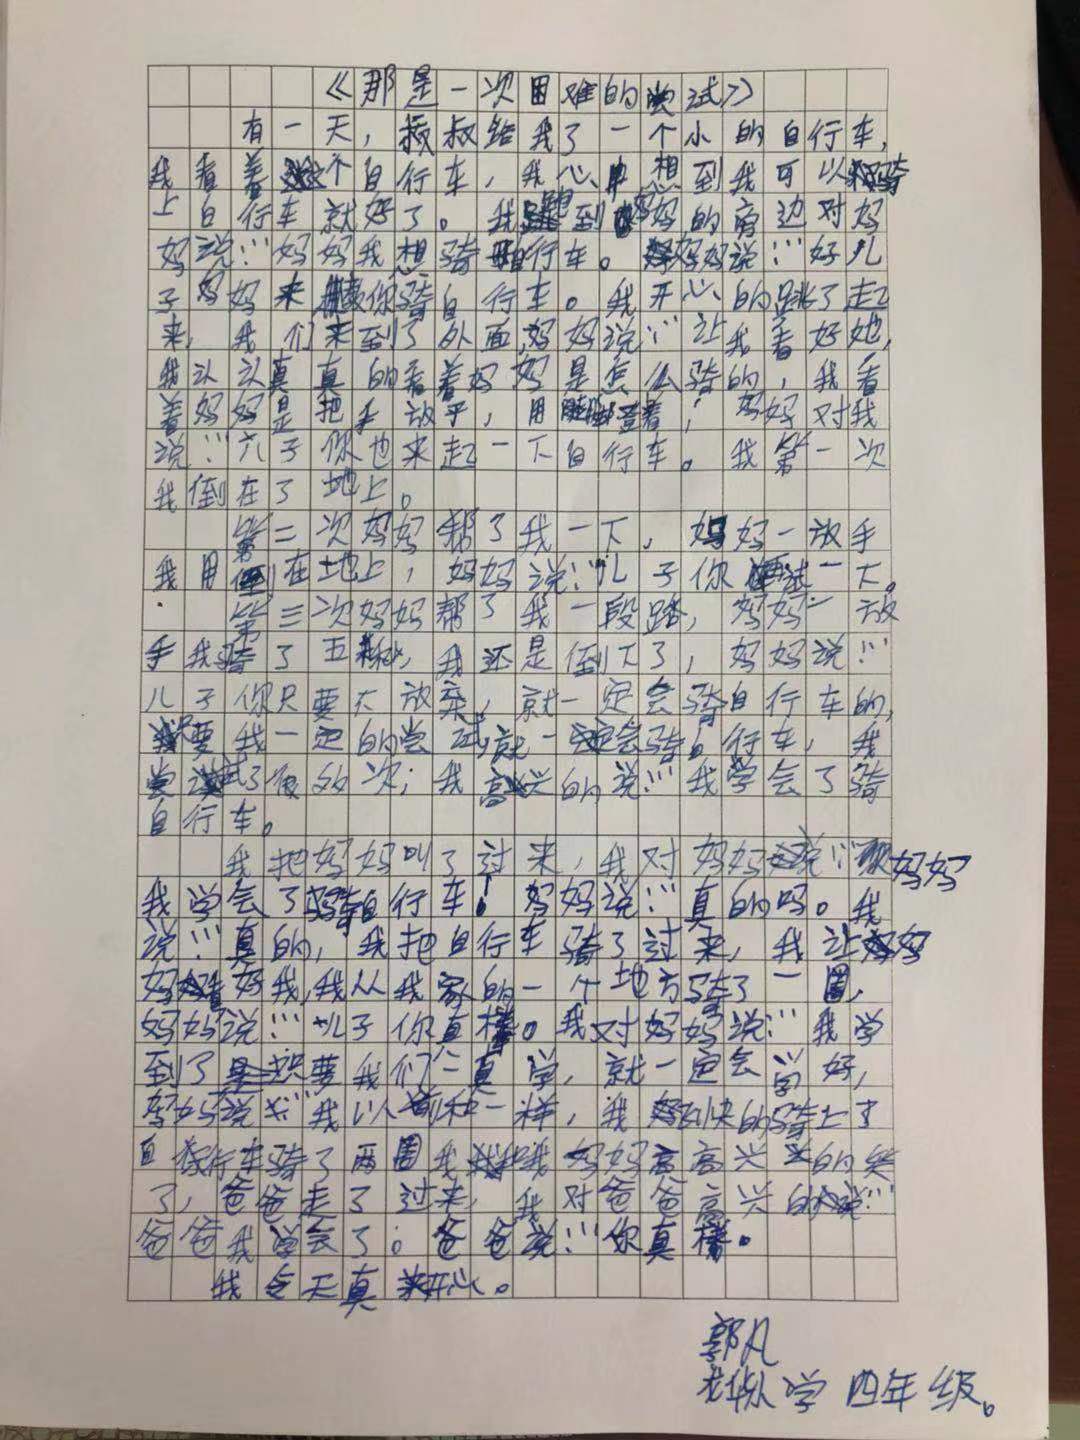 《那是一次困难的尝试》
有一天，叔叔给我了一个小的自行车，
我看着这个自行车，我心中想到我可以骑
上自行车就好了。我跑到妈妈的旁边对妈
妈说：“妈妈我想骑自行车。妈妈说：“好儿
子妈妈来教你骑自行车。我开心的跳了起
来，我们来到了外面，妈妈说：“让我看好她，
我认认真真的看着妈妈是怎么骑的，我看
着妈妈是把手放平，用脚登着；妈妈对我
说：“儿子你也来起一下自行车。我第一次
我倒在了地上。
第二次妈妈帮了我一下，妈妈一放手
我用倒在地上，妈妈说：“儿子你再试一下。
第三次妈妈帮了我一段路，妈妈一放
手我骑了五秒，我还是倒下了，妈妈说：“
儿子你只要不放弃，就一定会骑自行车的，
只要我一定的尝试，就一定会骑自行车，我
尝试了很多次；我高兴的说：“我学会了骑
自行车。
我把妈妈叫了过来，我对妈妈说：“妈妈
我学会了骑自行车！妈妈说：“真的吗。我
说：“真的，我把自行车骑了过来，我让妈
妈看好我，我从我家的一个地方骑了一圈，
妈妈说：“儿子你真棒。我对妈妈说：“我学
到了是只要我们认真学，就一定会学好，
妈妈说：“我以前和一样，我飞快的骑上了
自行车骑了两圈我和我妈妈高高兴兴的笑
了，爸爸走了过来，我对爸爸高兴的说：“
爸爸我学会了；爸爸说：“你真棒。
我今天真开心。
郭凡
学四年级。